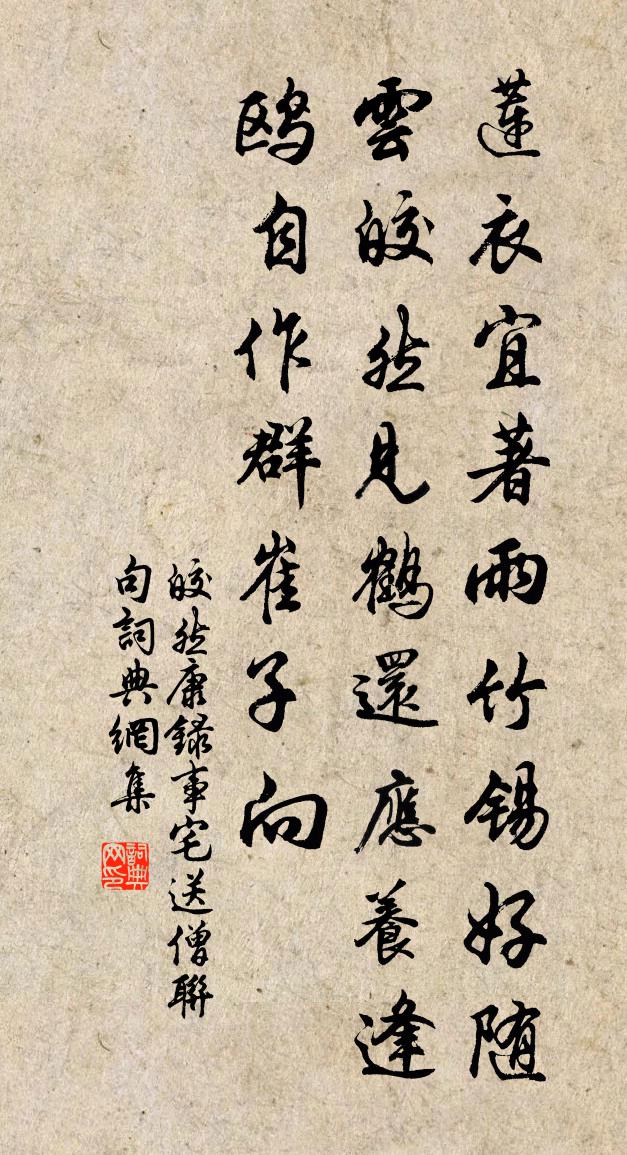 蓮衣宜著雨竹錫好随
雲皎然見鶴還應養逢
鸥自作群崔子向
皎然康録事宅送僧聯
句詞典網集
詞典网印